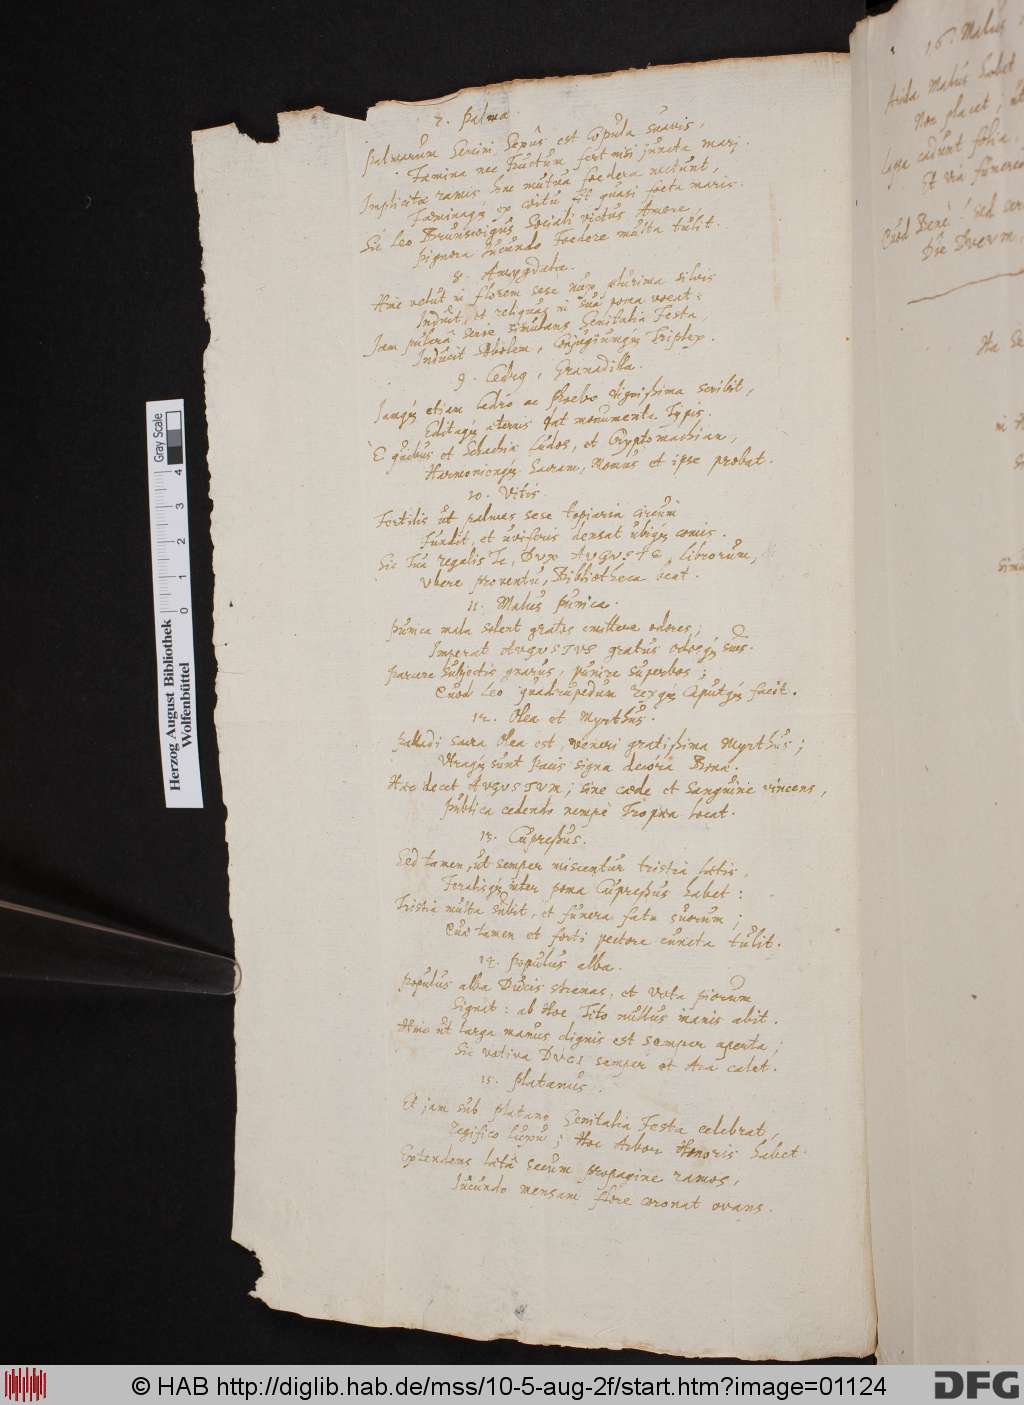 7. Palma.
Palmarum Gemini Sexûs est Copula suavis,
Fæmina nec Fructum fert nisi juncta mari.
Implicitæ ramis, hæ mutua foedera nectunt,
Fæminaq; ex coitu fit quasi foeta maris.
Sic Leo Brunswigus Sociali victus Amore,
Pignora Jucundo Foedere multa tulit.
8. Amygdala.
Hinc velut in florem sese nux plurima silvis
Induit, et reliquas in sua poma vocat:
Jam pulcrâ serie simulans Genitalia Festa,
Inducit Sobolem, Conjugiumq; Triplex.
9. Cedrq, Granadilla.
Jamq; etiam Cedro ac Phoebo dignissima scribit,
Editaq; æternis dat monumenta Typis.
È quibus et Schachia Ludos, et Cryptomachian,
Harmonienq; Sacram, Momus et ipse probat.
10. Vitis.
Fertilis ut palmes sese topiaria circum
Fundit, et uviferis densat ubiq; comis.
Sic Tua regalis Te, DVX AVGVSTE, librorum,
Vbere proventu, Bibliotheca beat.
11. Malus Punica.
Punica mala solent gratos emittere odores;
Imperat AVGVSTVS gratus odorq; suis.
Parcere subjectis gnarus, punire superbos;
Quod Leo quadrupedum Rexq; Caputq; facit.
12. Olea et Myrthus.
Palladi sacra Olea est, Veneri gratissima Myrthus;
Vtraq; sunt Pacis signa decora Bonæ.
Hæc decet AVGVSTVM; sine cæde et sanguine vincens,
Publica cedendo nempè Tropæa locat.
13. Cupressus.
Sed tamen, ut semper miscentur tristia lætis,
Feralisq; inter poma Cupressus habet:
Tristia multa subit, et funera fata suorum;
Quæ tamen et forti pectore cuncta tulit.
14. Populus alba.
Populus alba Ducis strenas, et Vota piorum
Signat: ab Hoc Tito nullus inanis abit.
Hinc ut larga manus dignis est semper aperta;
Sic votiva DVCI semper et Ara calet.
15. Platanus.
Et jam sub platano Genitalia Festa celebrat,
Regifico luxu; Hoc Arbor Honoris habet.
Extendens latâ secum propagine ramos,
Jucundo mensam flore coronat ovans.
16. Malus
Non placet; ut
cadunt folia.
Quod Benè! sed
Herzog August Bibliothek
Wolfenbüttel
0 1 2 3 4
Gray Scale
© HAB http://diglib.hab.de/mss/10-5-aug-2f/start.htm?image=01124
DFG